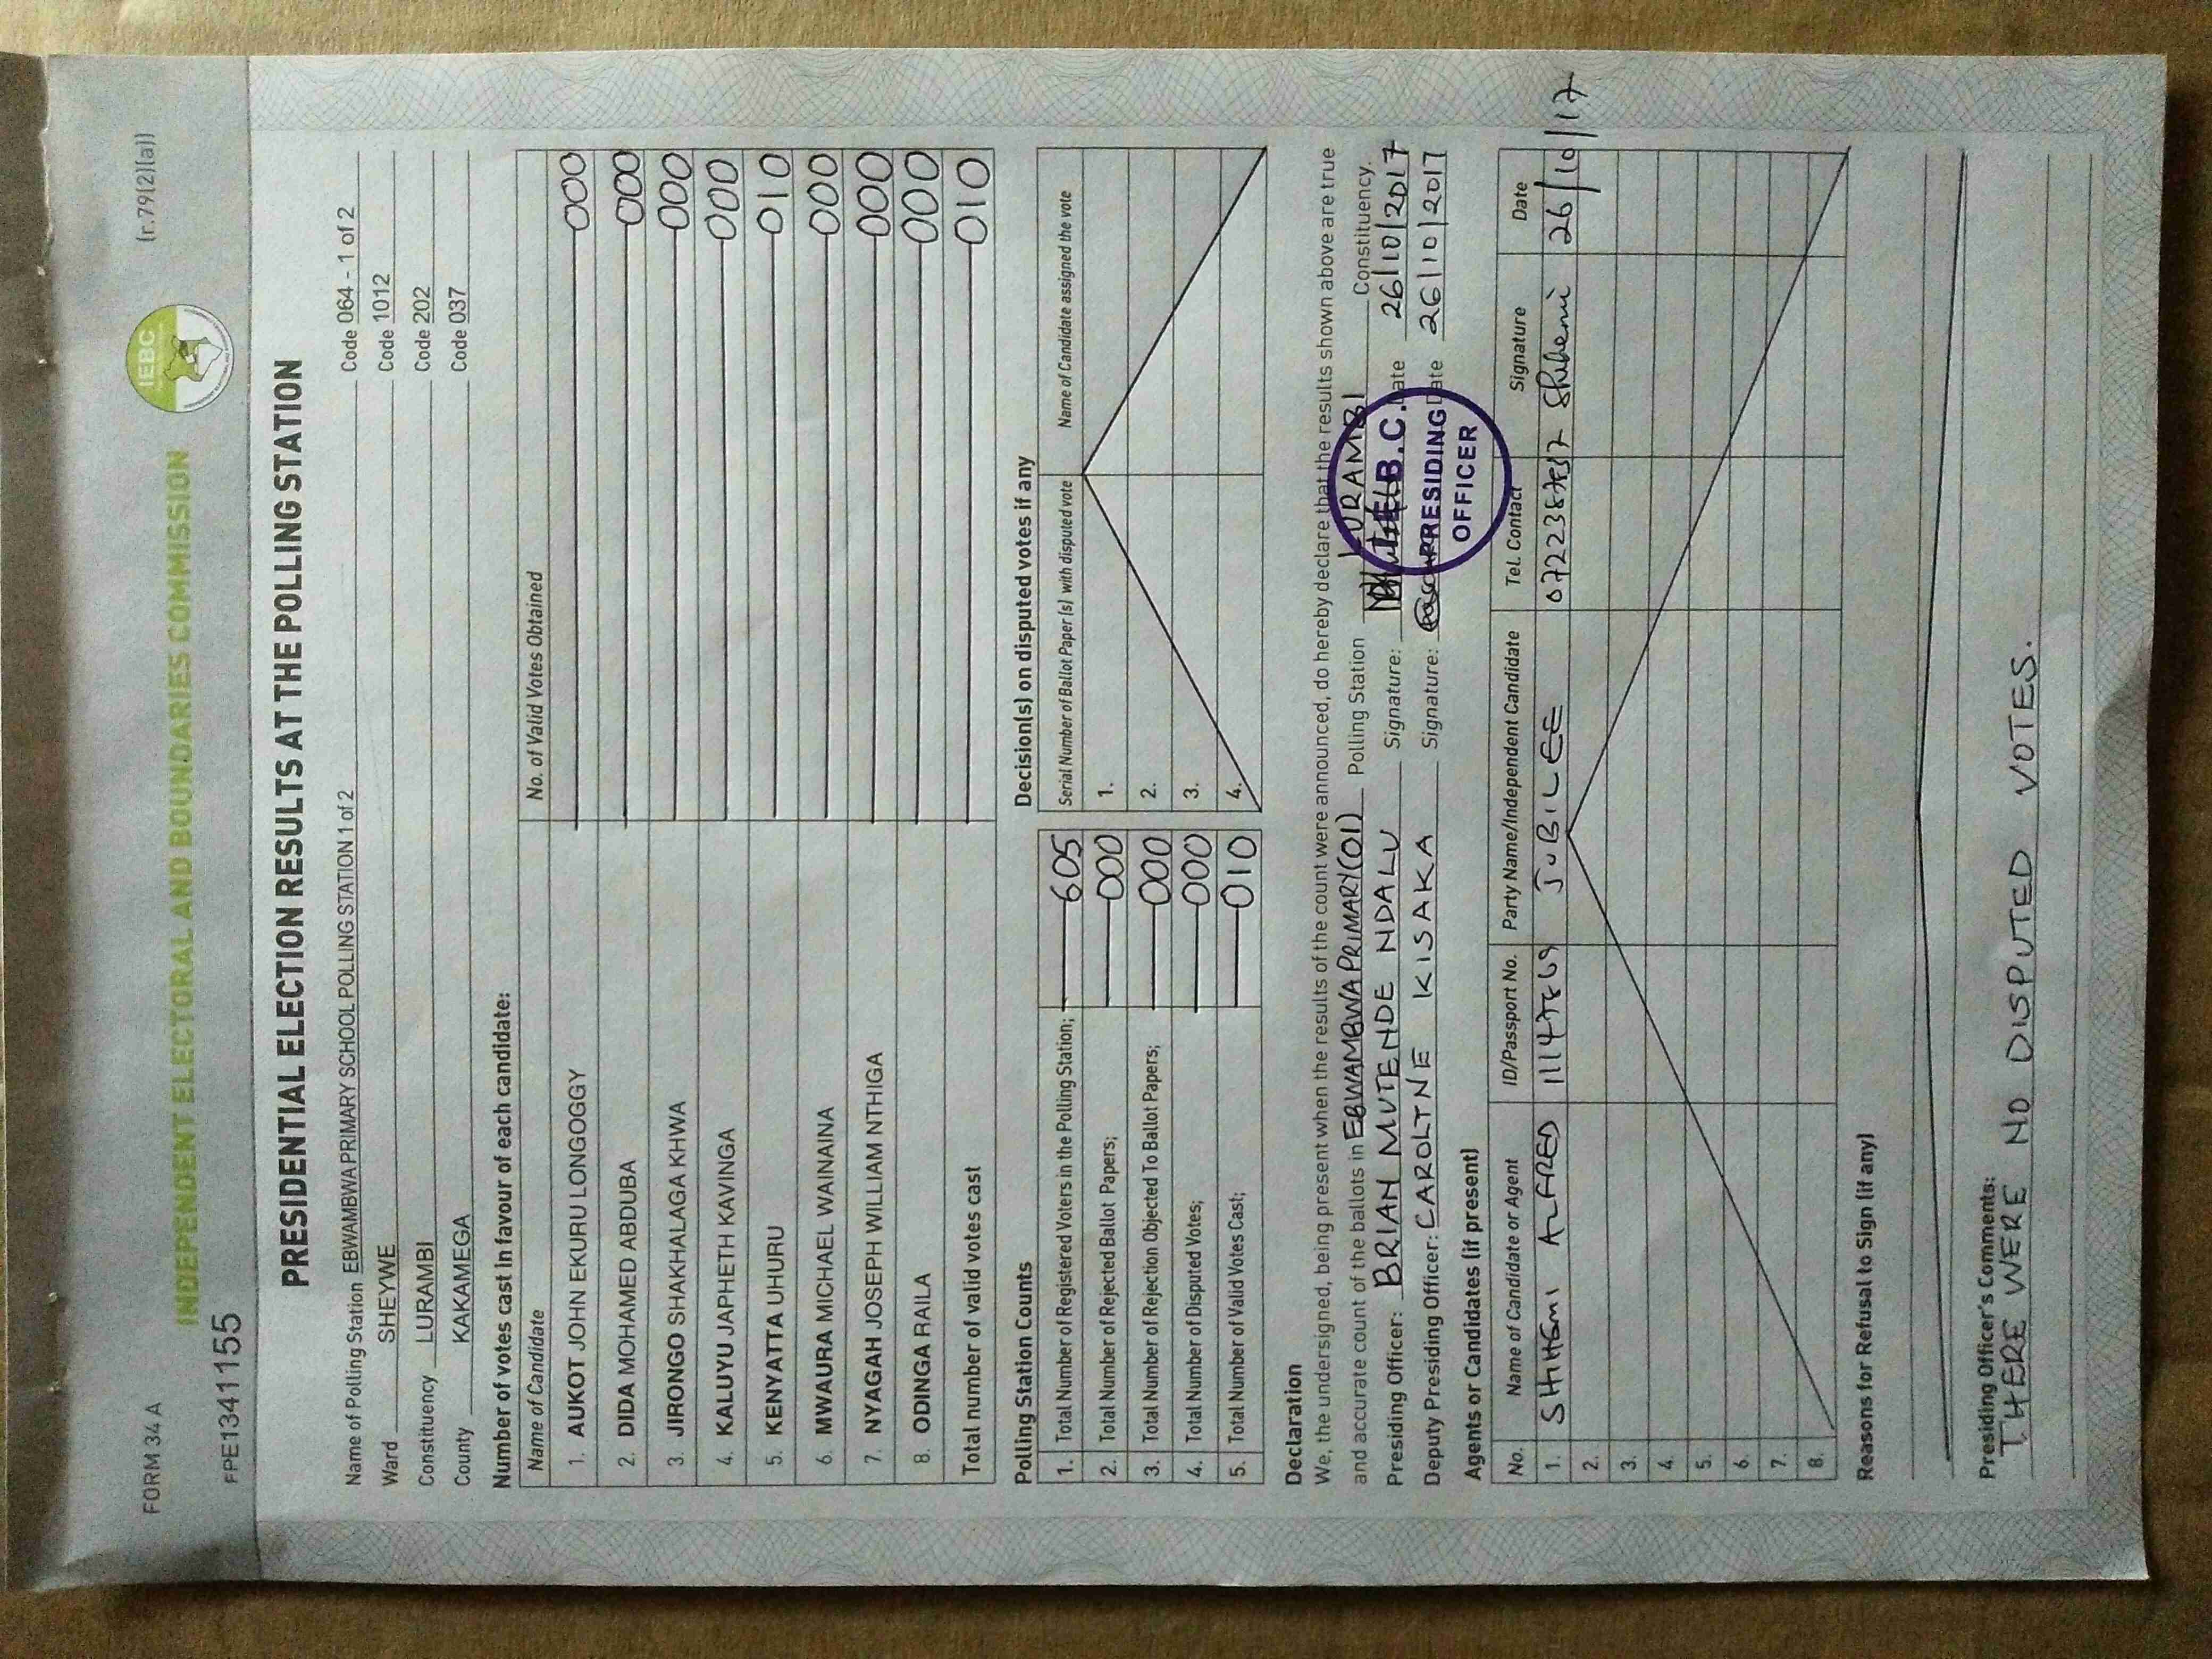 FORM 34 A
(r.79(2)(a))
INDEPENDENT ELECTORAL AND BOUNDARIES COMMISSION
IEBC
FPE1341155
PRESIDENTIAL ELECTION RESULTS AT THE POLLING STATION
Name of Polling Station EBWAMBWA PRIMARY SCHOOL POLLING STATION 1 of 2 Code 064 - 1 of 2
Ward SHEYWE Code 1012
Constituency LURAMBI Code 202
County KAKAMEGA Code 037
Number of votes cast in favour of each candidate:
Name of Candidate No. of Valid Votes Obtained
1. AUKOT JOHN EKURU LONGOGGY 000
2. DIDA MOHAMED ABDUBA 000
3. JIRONGO SHAKHALAGA KHWA 000
4. KALUYU JAPHETH KAVINGA 000
5. KENYATTA UHURU 010
6. MWAURA MICHAEL WAINAINA 000
7. NYAGAH JOSEPH WILLIAM NTHIGA 000
8. ODINGA RAILA 000
Total number of valid votes cast 010
Polling Station Counts
1. Total Number of Registered Voters in the Polling Station; 605
2. Total Number of Rejected Ballot Papers; 000
3. Total Number of Rejection Objected To Ballot Papers; 000
4. Total Number of Disputed Votes; 000
5. Total Number of Valid Votes Cast; 010
Decision(s) on disputed votes if any
Serial Number of Ballot Paper (s) with disputed vote Name of Candidate assigned the vote
1.
2.
3.
4.
Declaration
We, the undersigned, being present when the results of the count were announced, do hereby declare that the results shown above are true
and accurate count of the ballots in EBWAMBWA PRIMARY (01) Polling Station LURAMBI Constituency.
Presiding Officer: BRIAN MUTENDE NDALU Signature: Date 26/10/2017
Deputy Presiding Officer: CAROLINE KISAKA Signature: Date 26/10/2017
I.E.B.C.
PRESIDING
OFFICER
Agents or Candidates (if present)
No. Name of Candidate or Agent ID/Passport No. Party Name/Independent Candidate Tel. Contact Signature Date
1. SHIHEMI ALFRED JUBILEE Shihemi 26/10/17
2.
3.
4.
5.
6.
7.
8.
Reasons for Refusal to Sign (if any)
Presiding Officer's Comments:
THERE WERE NO DISPUTED VOTES.